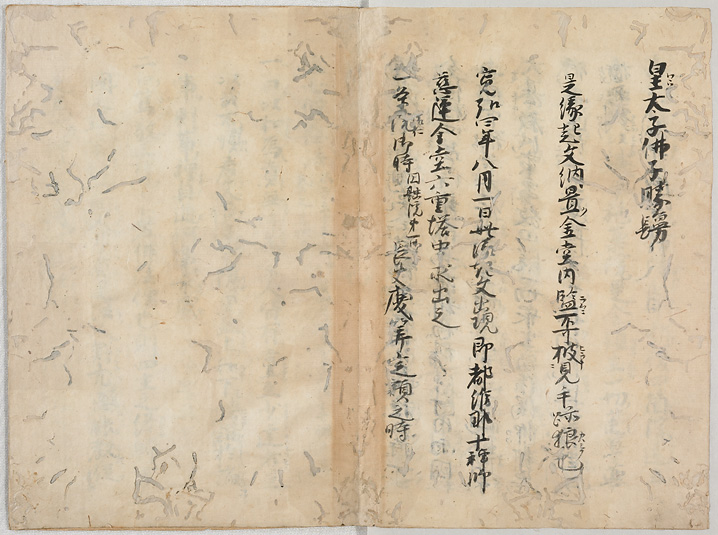 皇太子佛子勝鬘
是縁起文納置金堂内監不可披見手跡狼也
寛弘四年八月一日此縁起文出現即都維那十禅師
慈運金堂六重塔中求出之
一条院御時 長吏慶算定額之時